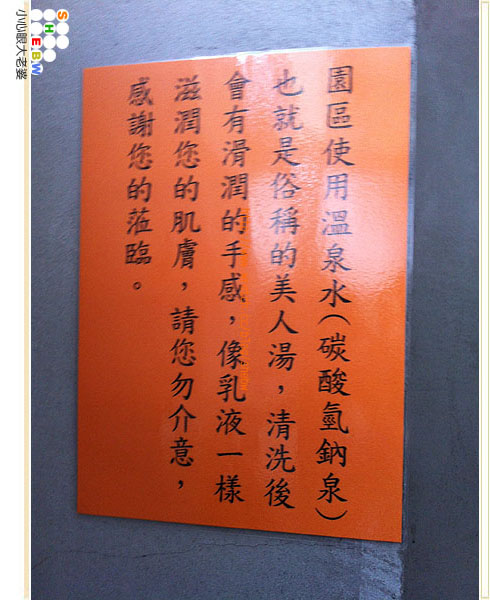 園區使用溫泉水(碳酸氫鈉泉)
也就是俗稱的美人湯,清洗後
會有滑潤的手感,像乳液一樣
滋潤您的肌膚,請您勿介意,
感謝您的蒞臨。
SHEBW
小心眼大老婆